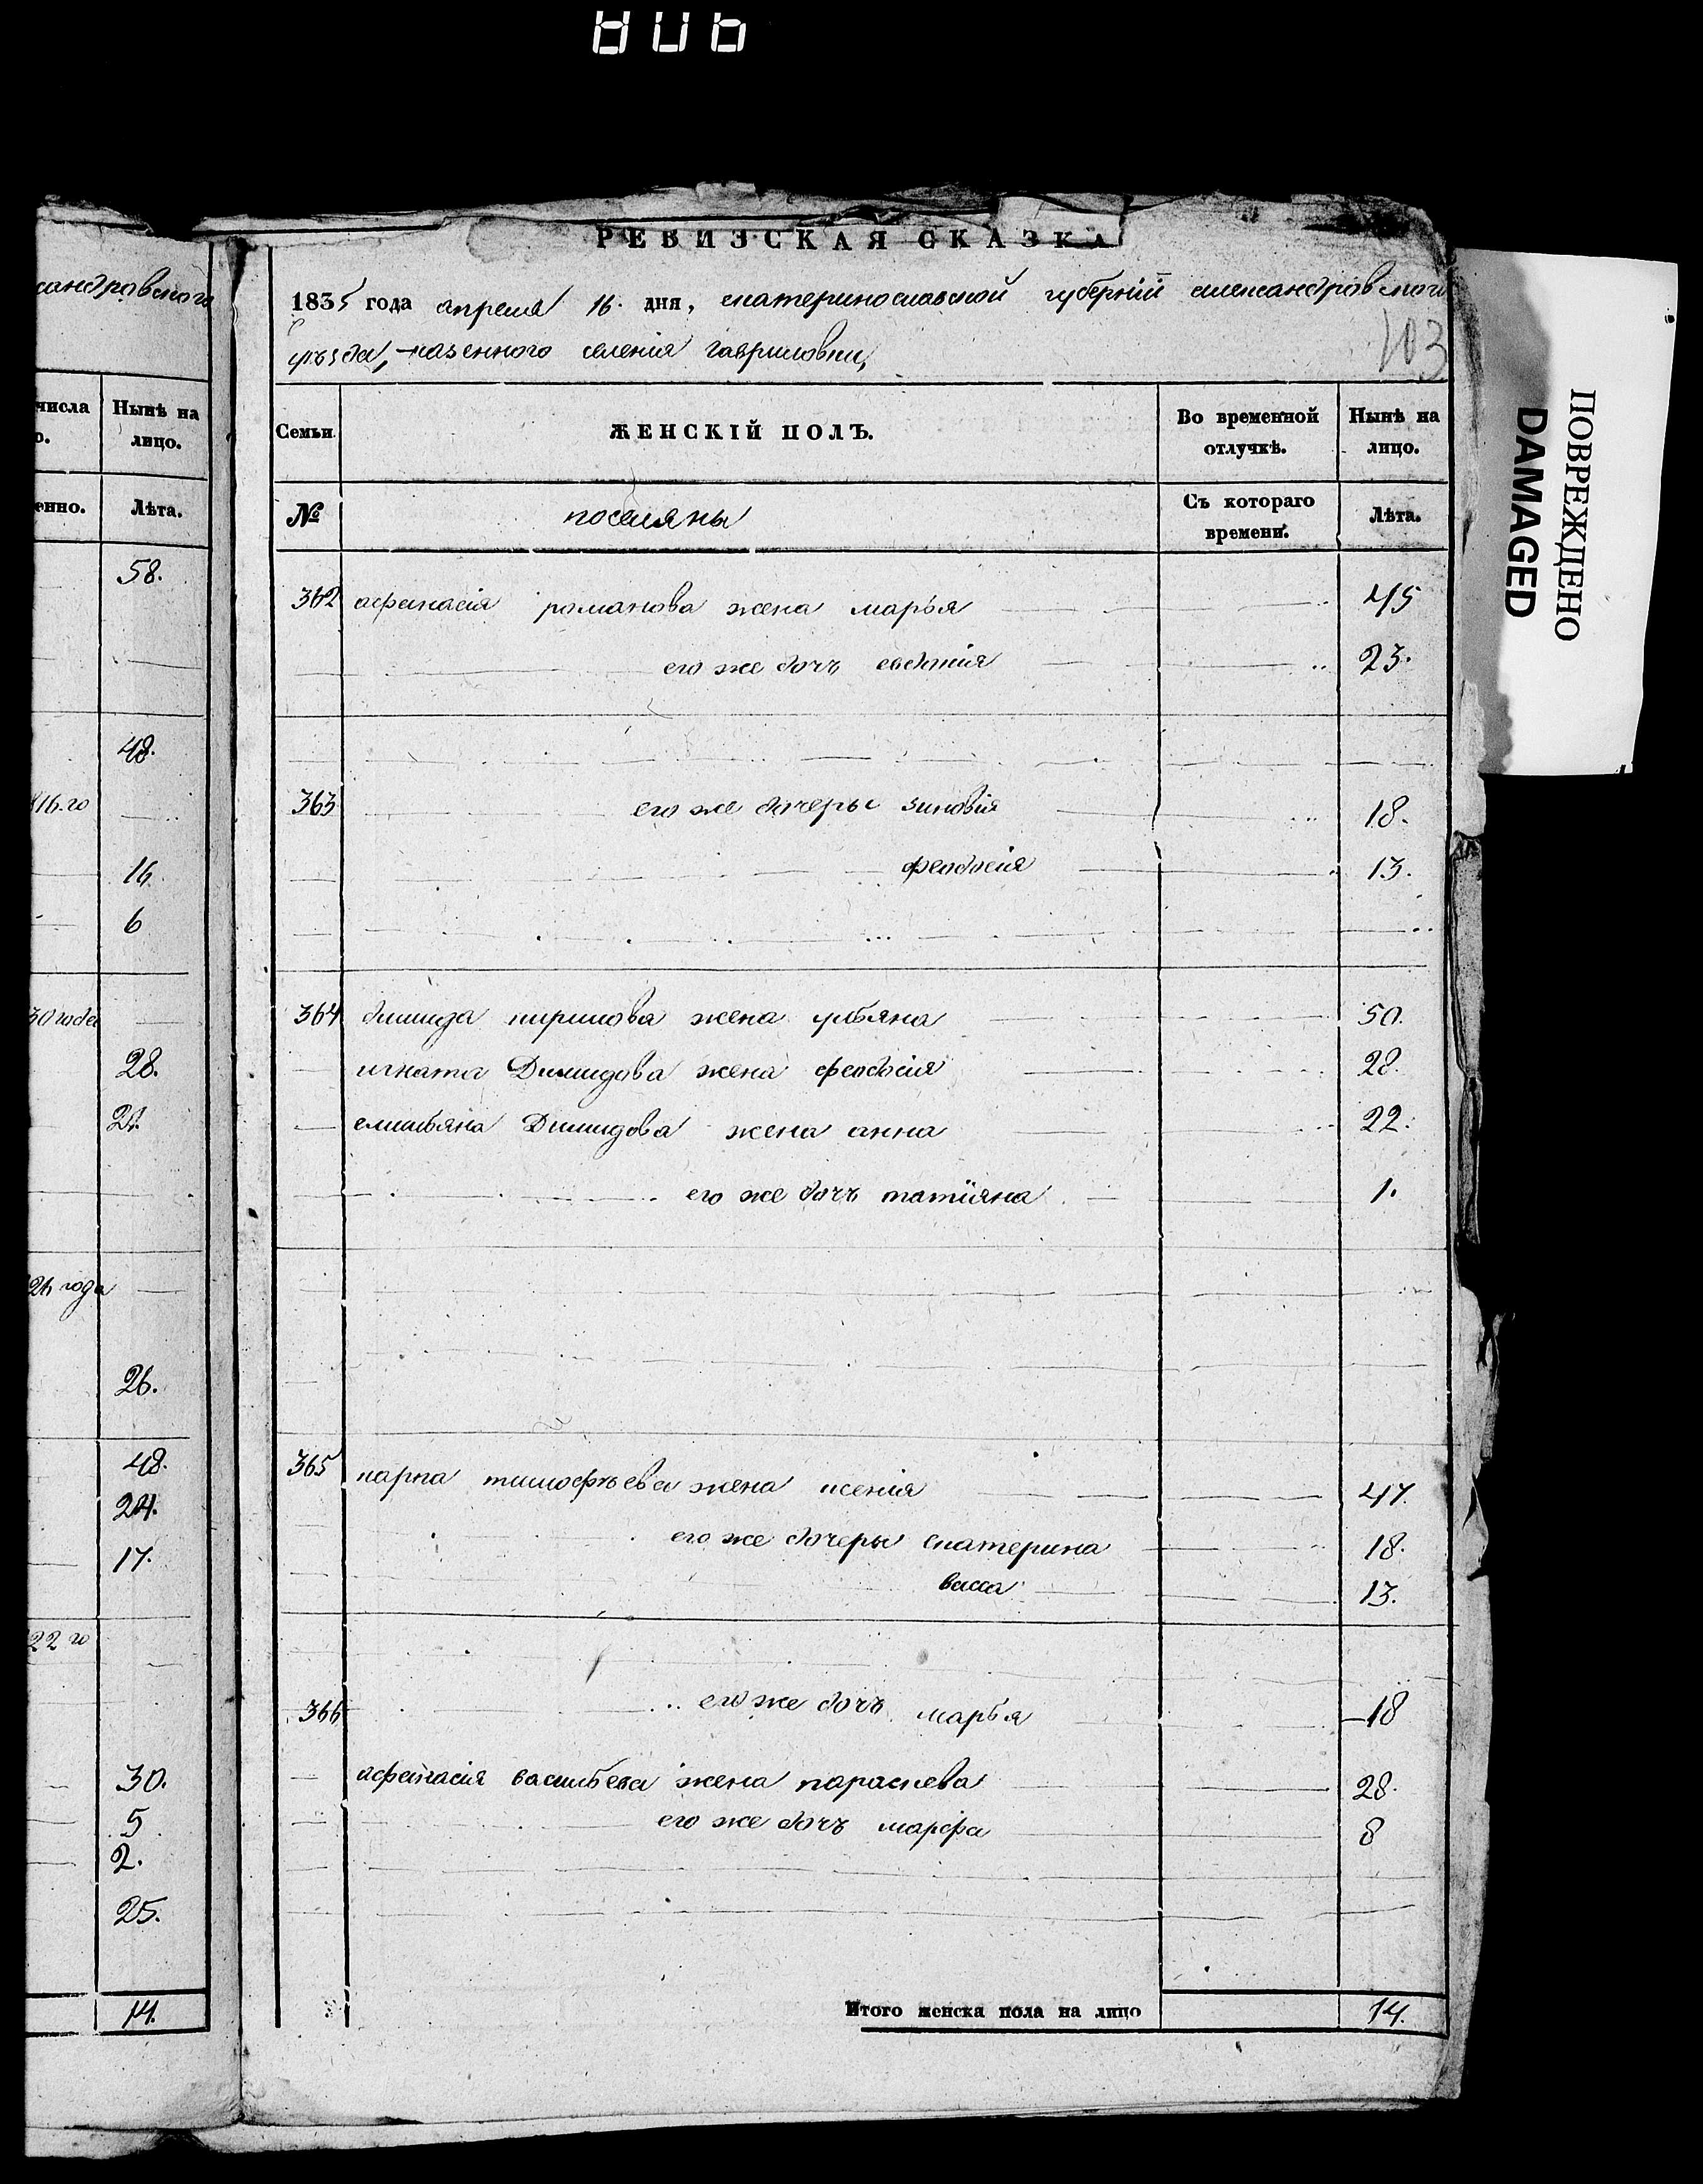 сандровского
числа
о.
Нынѣ на
лицо.
енно.
Лѣта.
58.
48.
816.го
16.
6
30 года
28.
21.
26 года
26.
48.
24.
17.
22 го
30.
5
2.
25.
14.
РЕВИЗСКАЯ СКАЗКА
1835 года апреля 16. дня, екатеринославской губерніи александровского
уѣзда, казенного селенія гавриловки,
103
Семьи.
ЖЕНСКІЙ ПОЛЪ.
Во временной
отлучкѣ.
Нынѣ на
лицо.
№
поселяны
Съ котораго
времени.
Лѣта.
362 афанасія романова жена марья 45
его же дочь евдокія 23.
363 его же дочеры зиновія 18.
феодосія 13.
364 димида кирилова жена ульяна 50.
игната Димидова жена феодосія 28.
емильяна Димидова жена анна 22.
его же дочь татіяна 1.
365 карпа тимофѣева жена ксенія 47.
его же дочеры екатерина 18.
васса 13.
366 его же дочь марья 18
афанасія васильева жена параскева 28.
его же дочь марфа 8
Итого женска пола на лицо 14.
ПОВРЕЖДЕНО
DAMAGED